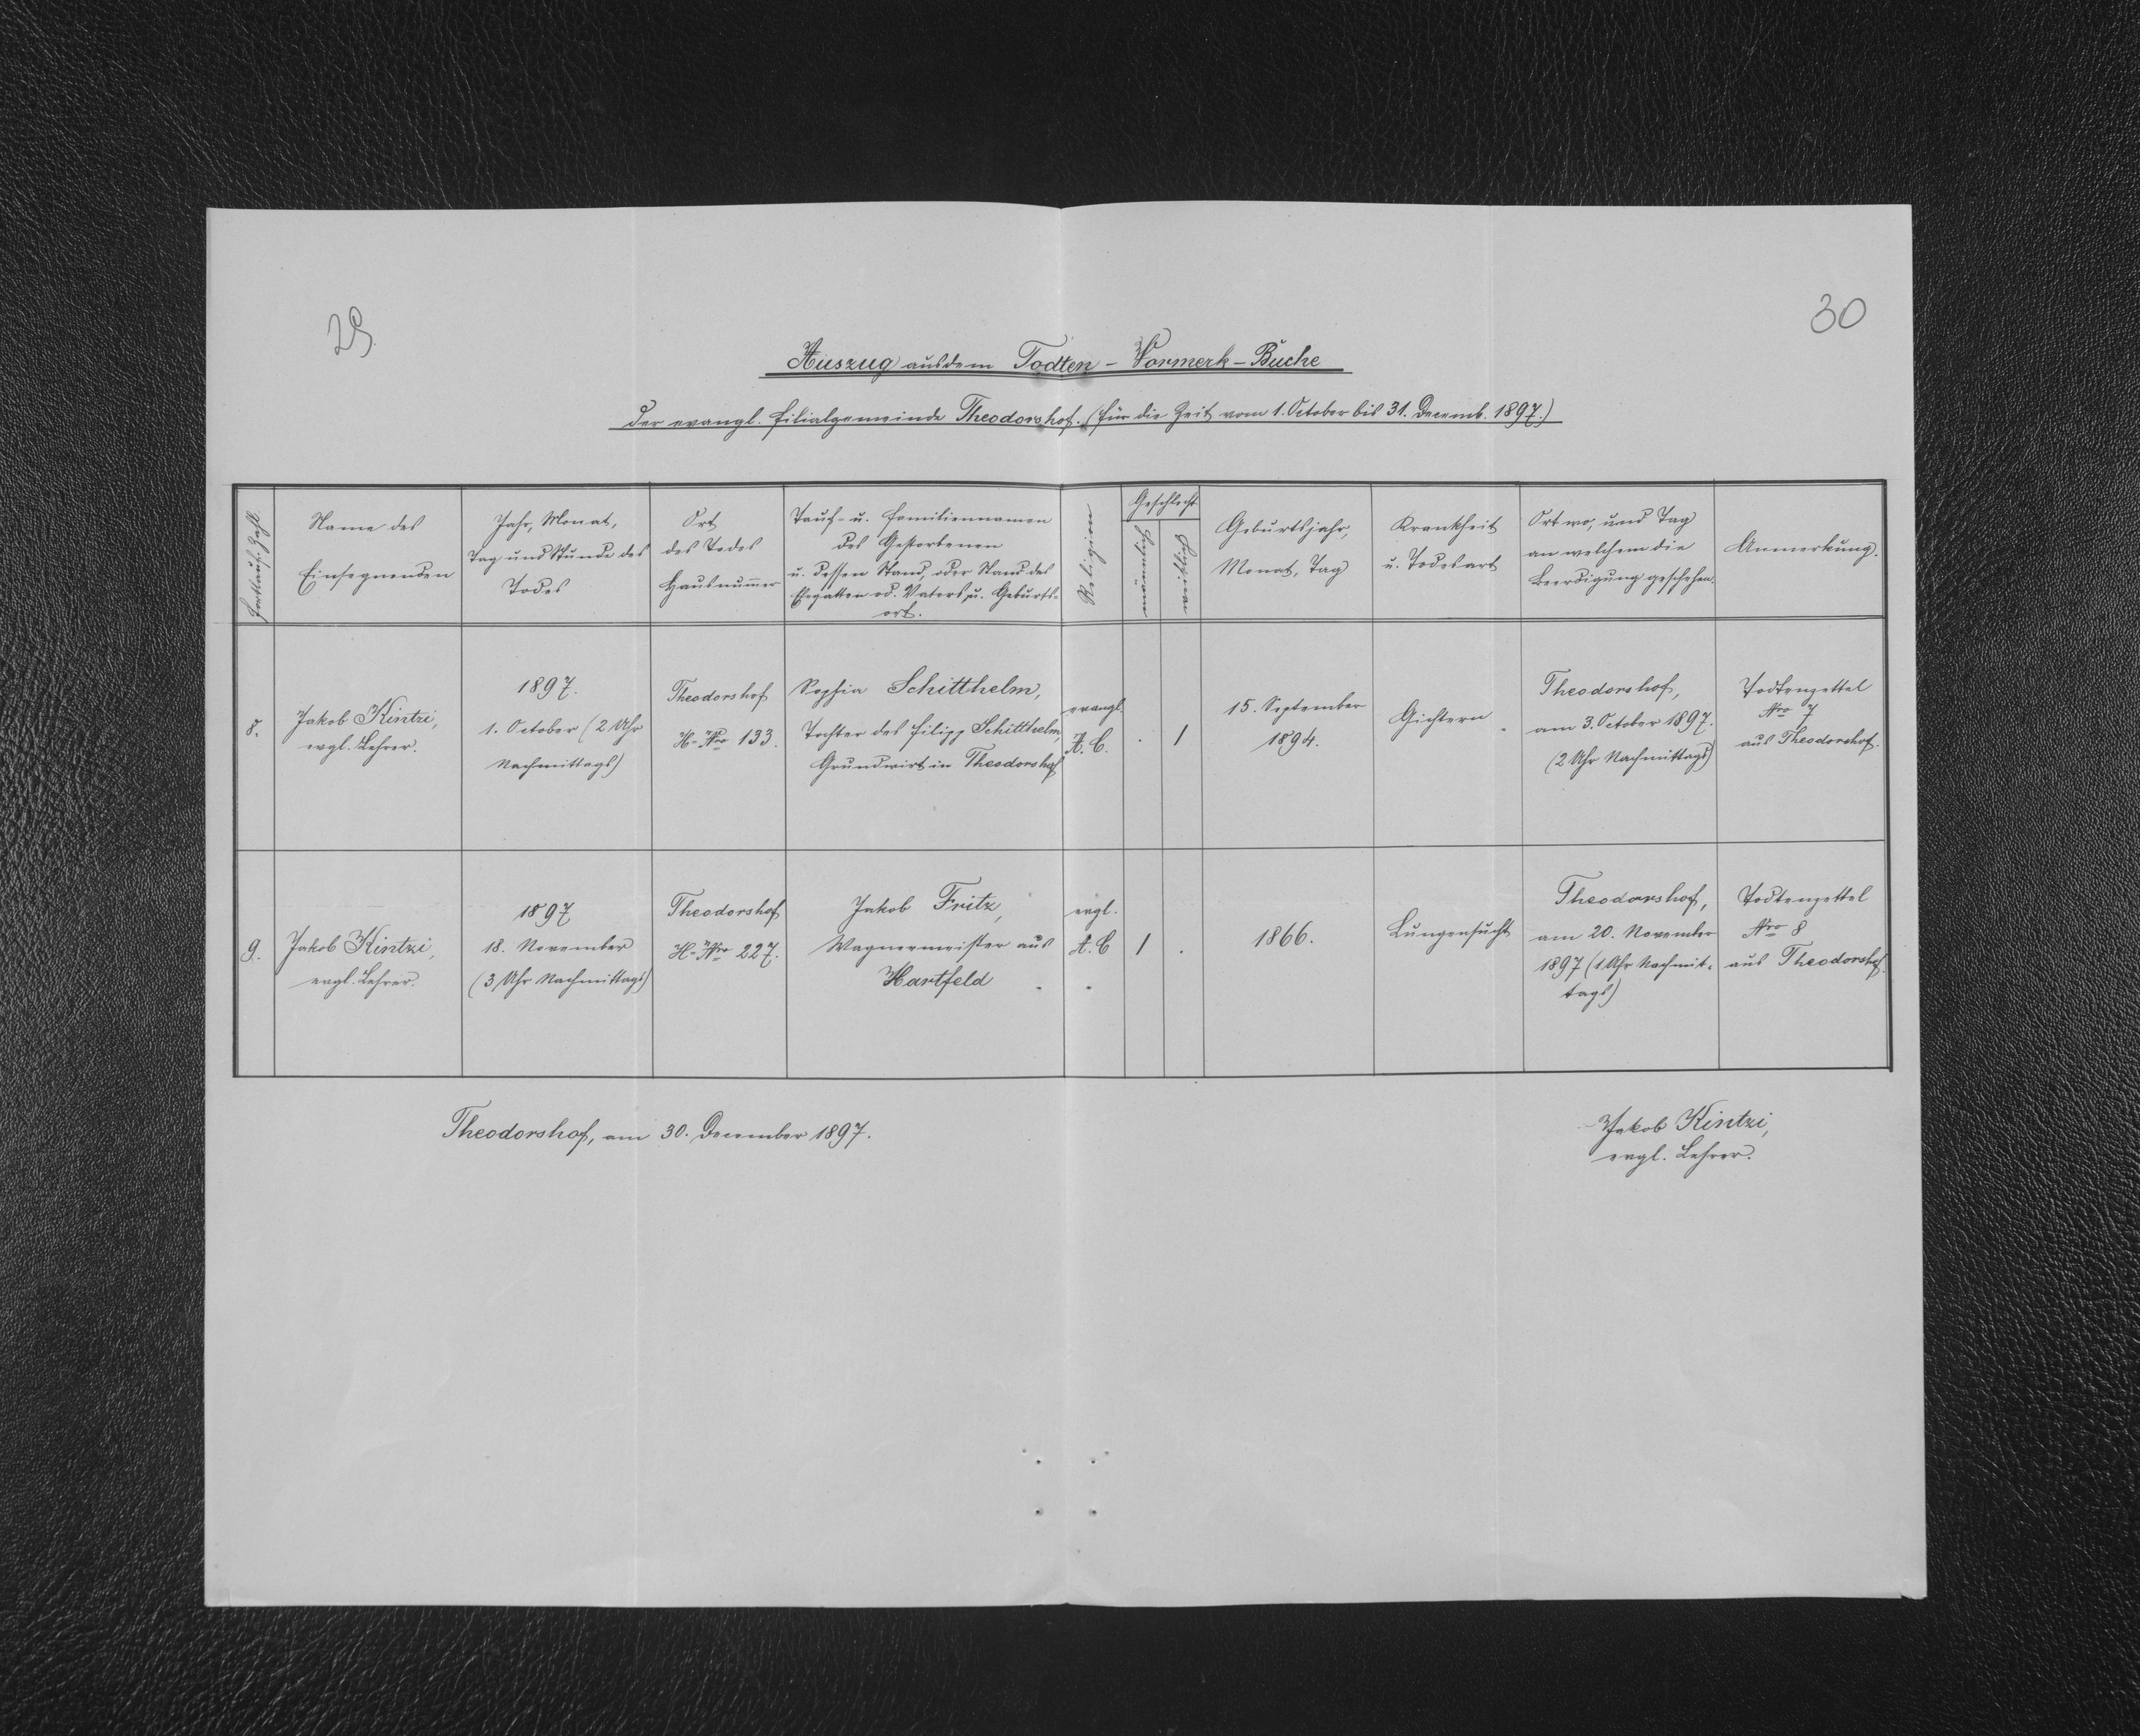 29.
30
Auszug aus dem Todten-Vormerk-Buche
der evangl. Filialgemeinde Theodorshof. (für die Zeit vom 1. October bis 31. Decemb. 1897.)
Fortlauf. Zahl.
Name des
Einsegnenden
Jahr, Monat,
Tag und Stunde des
Todes
Ort
des Todes
Hausnummer
Tauf- u. Familiennamen
des Gestorbenen
u. dessen Stand, oder Stand des
Ehegatten od. Vaters, u. Geburts-
ort.
Religion
Geschlecht
Geburtsjahr,
Monat, Tag
Krankheit
u. Todesart
Ort wo, und Tag
an welchem die
Beerdigung geschehen.
Anmerkung.
8.
Jakob Kintzi,
evgl. Lehrer.
1897.
1. October (2 Uhr
Nachmittags)
Theodorshof
H-Nro 133.
Sophia Schitthelm,
Tochter des Filipp Schitthelm
Grundwirt in Theodorshof
evangl.
A. C.
1
15. September
1894.
Gichtern
Theodorshof,
am 3. October 1897.
(2 Uhr Nachmittags)
Todtenzettel
Nro 7
aus Theodorshof.
9.
Jakob Kintzi,
evgl. Lehrer.
1897
18. November
(3 Uhr Nachmittags)
Theodorshof
H-Nro 227.
Jakob Fritz,
Wagnermeister aus
Hartfeld
evgl.
A. C
1
1866.
Lungensucht
Theodorshof,
am 20. November
1897 (1 Uhr Nachmit-
tags)
Todtenzettel
Nro 8
aus Theodorshof.
Theodorshof, am 30. December 1897.
Jakob Kintzi,
evgl. Lehrer.